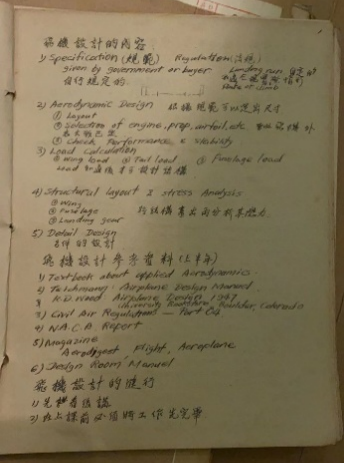 飛機設計的內容
1) Specification (規範) Regulation (法規)
given by government or buyer Landing run
自行規定的 Rate of climb
2) Aerodynamic Design 根據規範可以定出尺寸
① Layout
② Selection of engine, prop, airfoil, etc
③ Check Performance & stability
3) Load Calculation
① Wing load ② Tail load ③ Fuselage load
load 設計結構
4) Structural Layout & stress Analysis
① Wing
② Fuselage
③ Landing gear
5) Detail Design
各件的設計
飛機設計參考資料 (上半年)
1) Textbook about applied Aerodynamics
2) Teichmann: Airplane Design Manual
K.D. Wood Airplane Design 1947
University Bookstore, Boulder, Colorado
3) Civil Air Regulations — Part 04
4) N.A.C.A. Report
5) Magazine
Aerodigest, Flight, Aeroplane
6) Design Room Manual
飛機設計的進行
1) 先
2) 在上課前必須將工作先完畢